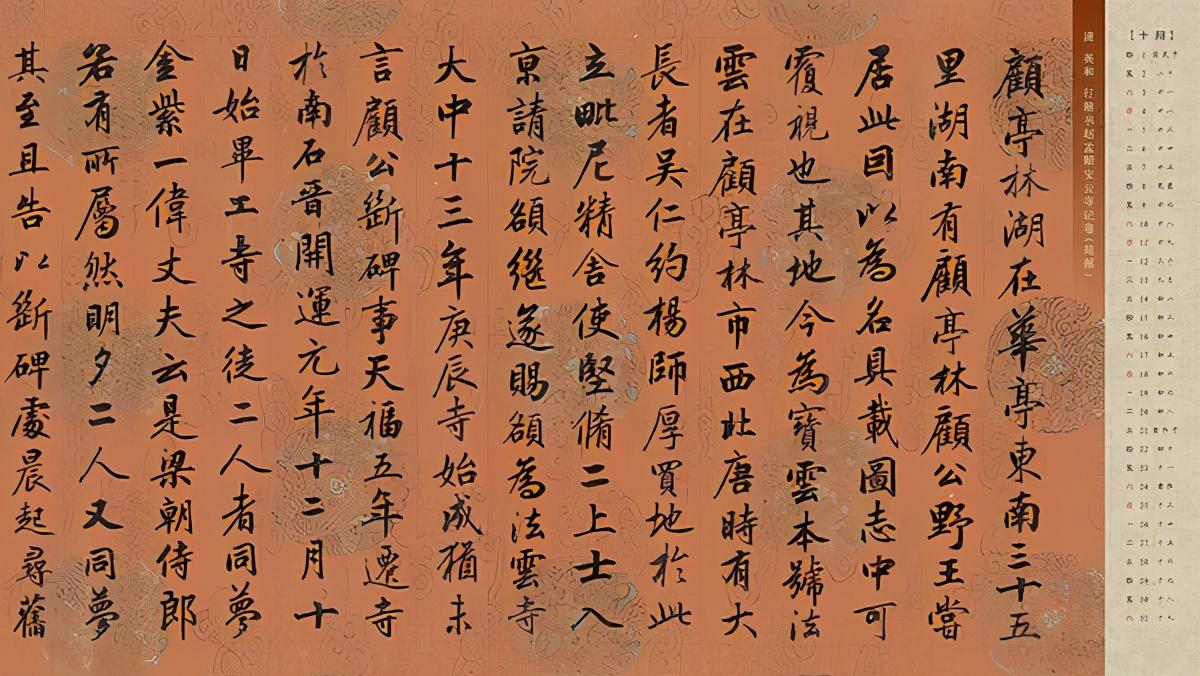 顧亭林湖在華亭東南三十五
里湖南有顧亭林顧公野王嘗
居此囙以為名具載圖志中可
覆視也其地今為寶雲本號法
雲在顧亭林市西北唐時有大
長者吳仁約楊師厚買地於此
立毗尼精舍使堅脩二上士入
京請院額繼遂賜額為法雲寺
大中十三年庚辰寺始成猶未
言顧公斷碑事天福五年遷寺
於南石晉開運元年十二月十
日始畢工寺之徒二人者同夢
金紫一偉丈夫云是梁朝侍郎
若有所屬然明夕二人又同夢
其至且告以斷碑處晨起尋舊